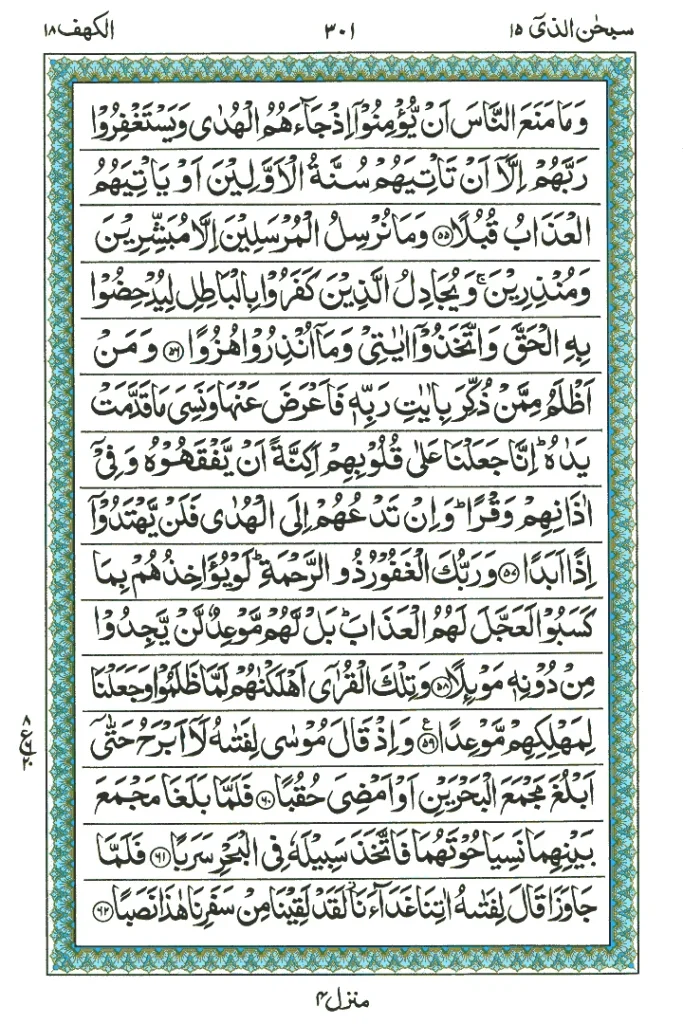 سبحٰن الذیٓ ١٥
٣٠١
الکھف ١٨
وَمَا مَنَعَ النَّاسَ اَنْ يُّؤْمِنُوْۤا اِذْ جَآءَهُمُ الْهُدٰى وَيَسْتَغْفِرُوْا
رَبَّهُمْ اِلَّاۤ اَنْ تَاْتِيَهُمْ سُنَّةُ الْاَوَّلِيْنَ اَوْ يَاْتِيَهُمُ
الْعَذَابُ قُبُلًا ۝٥٥ وَمَا نُرْسِلُ الْمُرْسَلِيْنَ اِلَّا مُبَشِّرِيْنَ
وَمُنْذِرِيْنَ ۚ وَيُجَادِلُ الَّذِيْنَ كَفَرُوْا بِالْبَاطِلِ لِيُدْحِضُوْا
بِهِ الْحَقَّ وَاتَّخَذُوْۤا اٰيٰتِيْ وَمَاۤ اُنْذِرُوْا هُزُوًا ۝٥٦ وَمَنْ
اَظْلَمُ مِمَّنْ ذُكِّرَ بِاٰيٰتِ رَبِّهٖ فَاَعْرَضَ عَنْهَا وَنَسِيَ مَا قَدَّمَتْ
يَدٰهُ ؕ اِنَّا جَعَلْنَا عَلٰى قُلُوْبِهِمْ اَكِنَّةً اَنْ يَّفْقَهُوْهُ وَفِيْۤ
اٰذَانِهِمْ وَقْرًا ؕ وَاِنْ تَدْعُهُمْ اِلَى الْهُدٰى فَلَنْ يَّهْتَدُوْۤا
اِذًا اَبَدًا ۝٥٧ وَرَبُّكَ الْغَفُوْرُ ذُو الرَّحْمَةِ ؕ لَوْ يُؤَاخِذُهُمْ بِمَا
كَسَبُوْا لَعَجَّلَ لَهُمُ الْعَذَابَ ؕ بَلْ لَّهُمْ مَّوْعِدٌ لَّنْ يَّجِدُوْا
مِنْ دُوْنِهٖ مَوْىِٕلًا ۝٥٨ وَتِلْكَ الْقُرٰۤى اَهْلَكْنٰهُمْ لَمَّا ظَلَمُوْا وَجَعَلْنَا
لِمَهْلِكِهِمْ مَّوْعِدًا ۝٥٩ ع وَاِذْ قَالَ مُوْسٰى لِفَتٰىهُ لَاۤ اَبْرَحُ حَتّٰۤى
اَبْلُغَ مَجْمَعَ الْبَحْرَيْنِ اَوْ اَمْضِيَ حُقُبًا ۝٦٠ فَلَمَّا بَلَغَا مَجْمَعَ
بَيْنِهِمَا نَسِيَا حُوْتَهُمَا فَاتَّخَذَ سَبِيْلَهٗ فِي الْبَحْرِ سَرَبًا ۝٦١ فَلَمَّا
جَاوَزَا قَالَ لِفَتٰىهُ اٰتِنَا غَدَآءَنَا ؗ لَقَدْ لَقِيْنَا مِنْ سَفَرِنَا هٰذَا نَصَبًا ۝٦٢
٨
ع
٢٠
منزل ٤